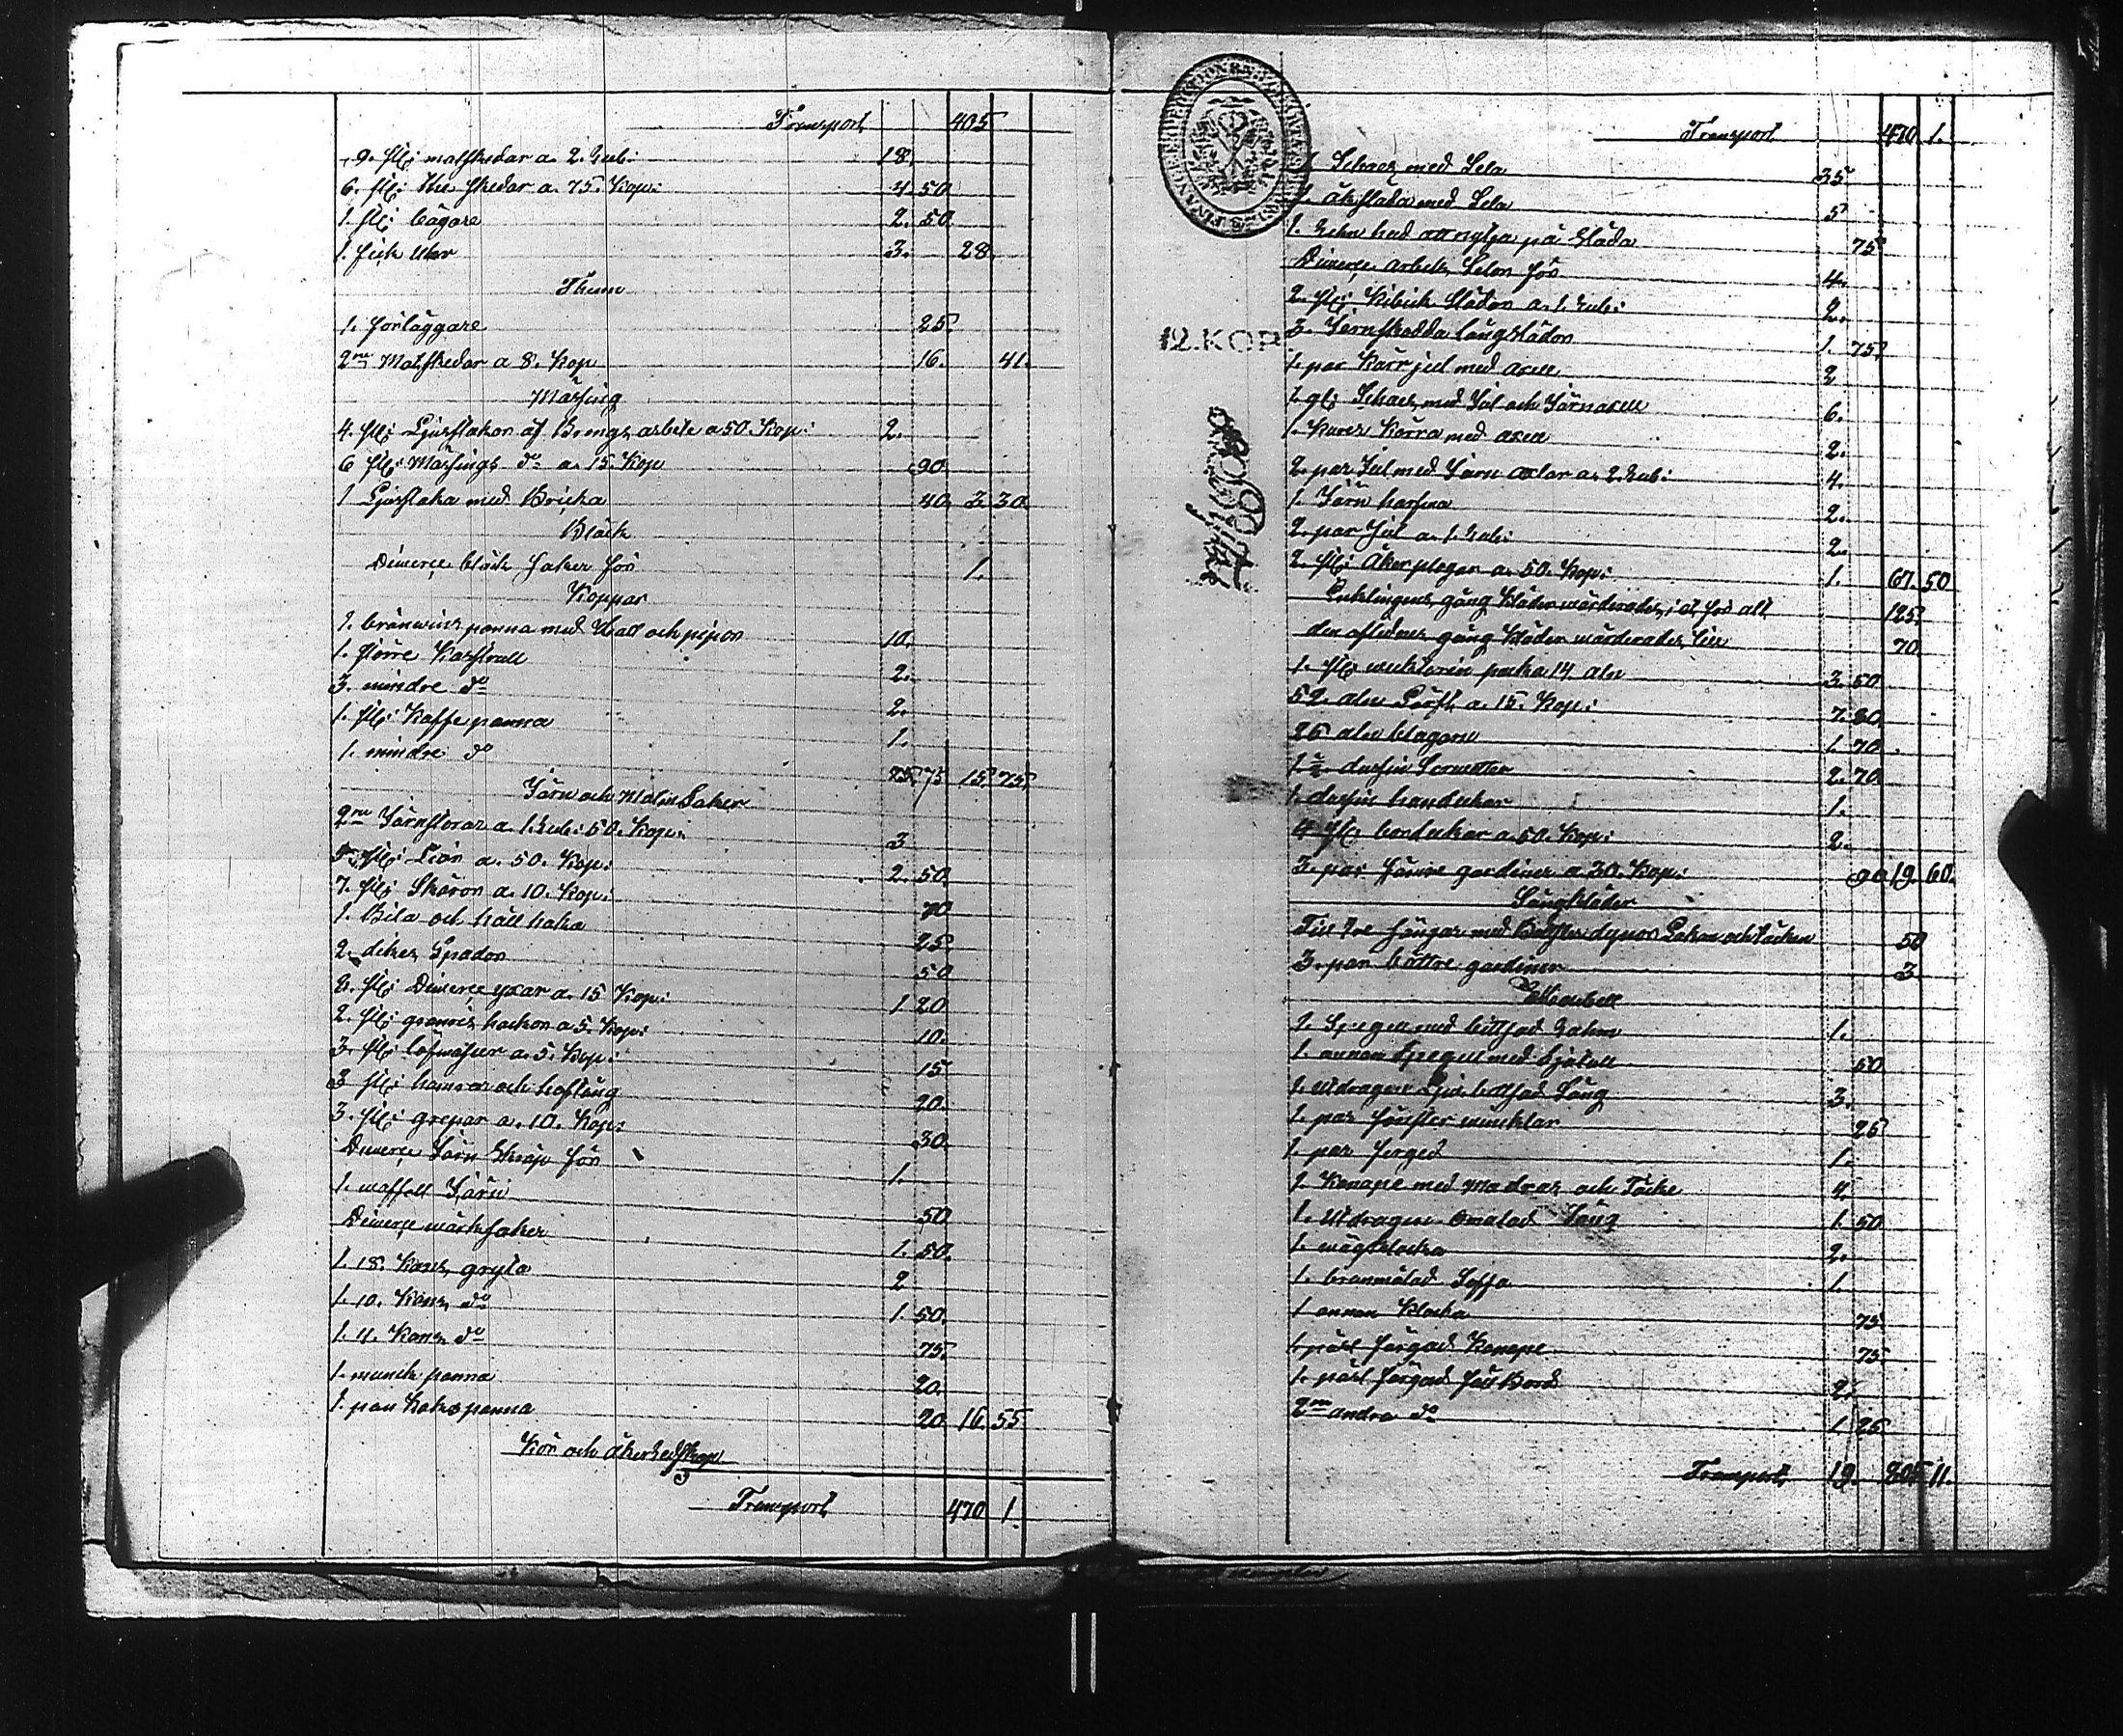 Transport 405
9. st: matskedar a. 2. Rub: 18
6. st: The skedar a. 75. Kop: 4 50
1. st: bägare 2. 50
1. fick Uhr 3. 28
Thenn
1. förläggare 25
2ne Matskedar a 8. Kop 16. 41.
Mässing
4. st: Ljusstakar af Brongs arbete a 50 Kop: 2.
6 st: Mässings do a. 15. Kop 90
1 Ljusstaka med Bricka 40 3 30
Bläck
Diverse bläck saker för 1.
Koppar
1. bränwins panna med Hatt och pipor 10.
1. större Kastrull 2.
3. mindre do 2.
1. st: Kaffe panna 1.
1. mindre do 75 15 75.
Järn och Malm Saker
2ne Järnstörar a. 1. Rub: 50. Kop: 3
5. st: Liar a. 50. Kop: 2. 50
7. st: Skäror a. 10. Kop: 70
1. Bila och håll haka 25
2. dikes Spador 50
8. st: Diverse yxar a. 15 Kop: 1 20
2. st: granris hackor a 5. Kop: 10.
3. st: löfwässer a. 5. Kop: 15
3 st: hamrar och hoftång 20.
3. st: grepar a. 10. Kop: 30.
Diverse Järn Skrap för 1.
1. waffell Järn 50
Diverse wärksaker 1. 50.
1. 18. Kans gryta 2
1. 10. Kans do 1. 50.
1. 11. Kans do 75.
1. munk panna 20.
1. pan Kaks panna 20 16 55
Kör och åkerredskap
Transport 470 1.
Transport 470 1.
1. Schaes med Sela 35
1. åkslada med Sela 5
1. Ren hud att nytja på Släda 75
Diverse arbets Selar för 4.
2. st: Kibick Slädor a. 1. Rub: 2.
3. Järnskodda långslädor 1. 75.
1. par Kärr jul med axell 2
1. gl: Schaes med Jul och Järnaxell 6.
1. Kures Kärra med axell 2.
2. par Jul med Järn axlar a. 2. Rub: 4.
1. Järn harfwa 2.
2. par Jul a. 1. Rub: 2.
2. st: Åker plogar a. 50. Kop: 1. 67. 50
Enklingens gång Kläder wärderades för alt 125.
den aflidnes gång Kläder wärderades till 70
1. st: 14 aln 3. 50
52. aln Lärft a. 15. Kop: 7. 80.
26 aln blagarn 1. 70
dussin Servetter 2. 70.
1. dussin handukar 1.
4 st: bordukar a. 50. Kop: 2.
3. par sämre gardiner a 30. Kop: 90 19. 60.
Sängkläder
Till Tre sängar med dynor Lakan och täcken 50
3. par bättre gardiner 3
Meubell
1. Spegell med bittsad Rahm 1.
1. annan Spegell med 50
1. utdragen bittsad Säng 3.
1. par fönster 25
1. par 1.
1. Kanape med Madras och Täcke 4
1. Utdragen Omålad Säng 1. 50
1. wägg klocka 2.
1. brunmålad Soffa 1.
1 annan Klocka 75.
1. färgad Kanape 75.
1. färgad fäll Bord 2.
2ne andra do 1 25
Transport 19. 805 11.
12. KOP